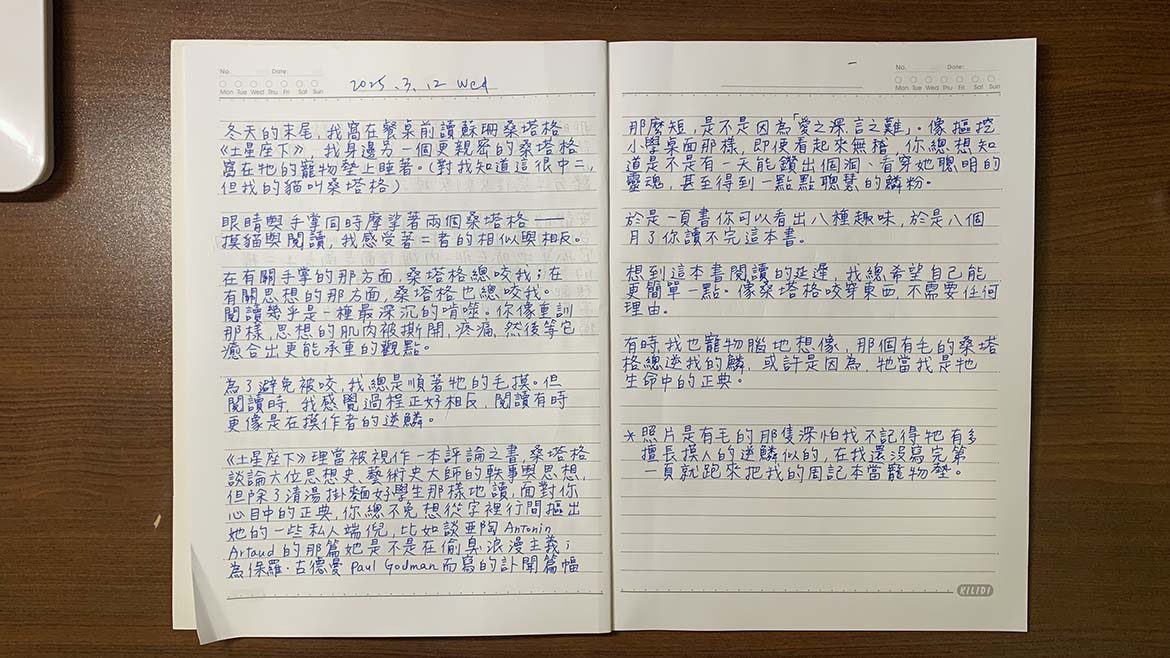 No. Date:
Mon Tue Wed Thu Fri Sat Sun
2025.3.12 Wed
冬天的末尾,我窩在餐桌前讀蘇珊桑塔格
《土星座下》,我身邊另一個更親密的桑塔格
窩在牠的寵物墊上睡著。(對我知道這很中二,
但我的貓叫桑塔格)
眼睛與手掌同時摩挲著兩個桑塔格——
摸貓與閱讀,我感受著二者的相似與相反。
在有關手掌的那方面,桑塔格總咬我;在
有關思想的那方面,桑塔格也總咬我。
閱讀幾乎是一種最深沉的啃噬。你像重訓
那樣,思想的肌肉被撕開,疼痛,然後等它
癒合出更能承重的觀點。
為了避免被咬,我總是順著牠的毛摸。但
閱讀時,我感覺過程正好相反,閱讀有時
更像是在摸作者的逆鱗。
《土星座下》理當被視作一本評論之書,桑塔格
談論六位思想史、藝術史大師的軼事與思想,
但除了清湯掛麵好學生那樣地讀,面對你
心目中的正典,你總不免想從字裡行間摳出
她的一些私人端倪,比如談亞陶Antonin
Artaud的那篇她是不是在偷臭浪漫主義;
為保羅·古德曼Paul Godman而寫的訃聞篇幅
No. Date:
Mon Tue Wed Thu Fri Sat Sun
那麼短,是不是因為「愛之深,言之難」。像摳挖
小學桌面那樣,即使看起來無稽,你總想知
道是不是有一天能鑽出個洞、看穿她聰明的
靈魂,甚至得到一點點聰慧的鱗粉。
於是一頁書你可以看出八種趣味,於是八個
月了你讀不完這本書。
想到這本書閱讀的延遲,我總希望自己能
更簡單一點。像桑塔格咬穿東西,不需要任何
理由。
有時,我也寵物腦地想像,那個有毛的桑塔
格總逆我的鱗,或許是因為,牠當我是牠
生命中的正典。
*照片是有毛的那隻深怕我不記得牠有多
擅長摸人的逆鱗似的,在我還沒寫完第
一頁就跑來把我的周記本當寵物墊。
KILIDI